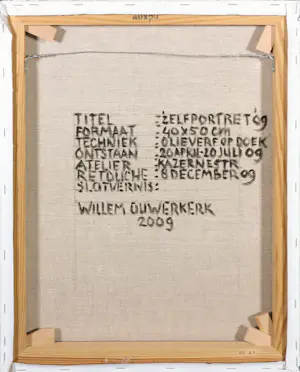 40x50
TITEL : ZELFPORTRET '09
FORMAAT : 40x50 cm
TECHNIEK : OLIEVERF OP DOEK
ONTSTAAN : 20 APRIL-20 JULI 09
ATELIER : KAZERNESTR
RETOUCHE : 8 DECEMBER 09
SLOTVERNIS:
WILLEM OUWERKERK
2009